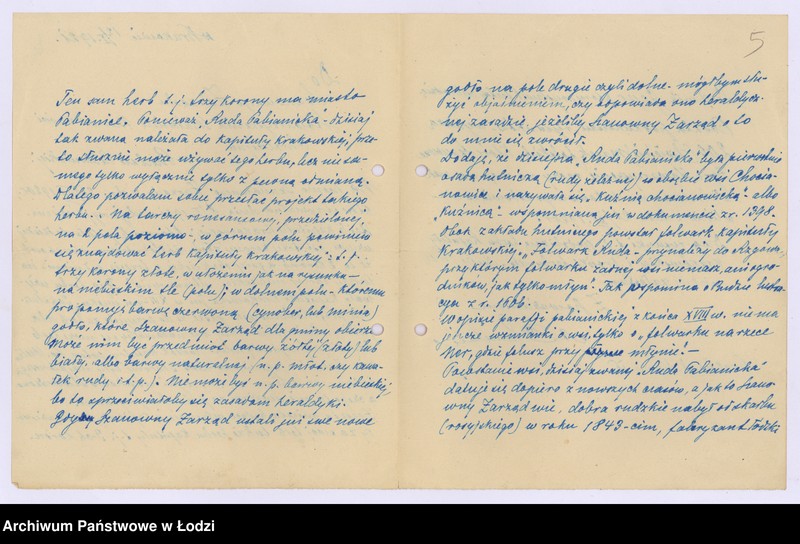 Ten sam herb t.j. trzy korony ma miasto
Pabianice. Ponieważ "Ruda Pabianicka" dzisiaj
tak zwana należała do kapituły Krakowskiej, prze-
to słusznie może używać tego herbu, lecz nie sa-
mego tylko wyłącznie tylko z pewną odmianą.
Dlatego pozwalam sobie przesłać projekt takiego
herbu. Na tarczy romańskiej, przedzielonej
na 2 pola poziomo, w górnem polu powinien
się znajdować herb kapituły Krakowskiej: t.j.
trzy korony złote, w ułożeniu jak na rysunku -
na niebieskim tle (polu); w dolnem polu - któremu
proponuję barwę czerwoną (cynober, lub minia)
godło, które Szanowny Zarząd dla gminy obierze.
Może nim być przedmiot barwy żółtej (złoty) lub
białej, albo barwy naturalnej (n.p. młot, czy kawa-
łek rudy i t.p.). Nie może być n.p. barwy niebieskiej,
bo to sprzeciwiałoby się zasadom heraldyki.
Gdyby Szanowny Zarząd ustalił już swe nowe
5
godło na pole drugie czyli dolne - mógłbym słu-
żyć objaśnieniem, czy odpowiada ono heraldycz-
nej zasadzie, jeżeliby Szanowny Zarząd o to
do mnie się zwrócił.
Dodaję, że dzisiejsza "Ruda Pabianicka" była pierwotnie
osadą hutniczą (rudy żelaznej) w obrębie wsi Chocia-
nowice i nazywała się "Kuźnią chocianowicką" albo
"Kuźnicą" - wspomnianą już w dokumencie z r. 1398.
Obok zakładu hutniczego powstał folwark kapituły
Krakowskiej: "Folwark Ruda - przynależy do Rzgowa,
przy którym folwarku żadnej wsi niemasz, ani ogro-
dników, jak tylko młyn". Tak wspomina o Rudzie lustra-
cya z r. 1606.
W opisie parafji pabianickiej z końca XVIII w. niema
jeszcze wzmianki o wsi, tylko o "folwarku na rzece
Ner, gdzie folusz przy młynie!" -
Powstanie wsi, dzisiaj zwanej "Ruda Pabianicka"
datuje się dopiero z nowszych czasów, a jak to Szano-
wny Zarząd wie, dobra rudzkie nabył od skarbu
(rosyjskiego) w roku 1843-cim, fabrykant łódzki
Archiwum Państwowe w Łodzi